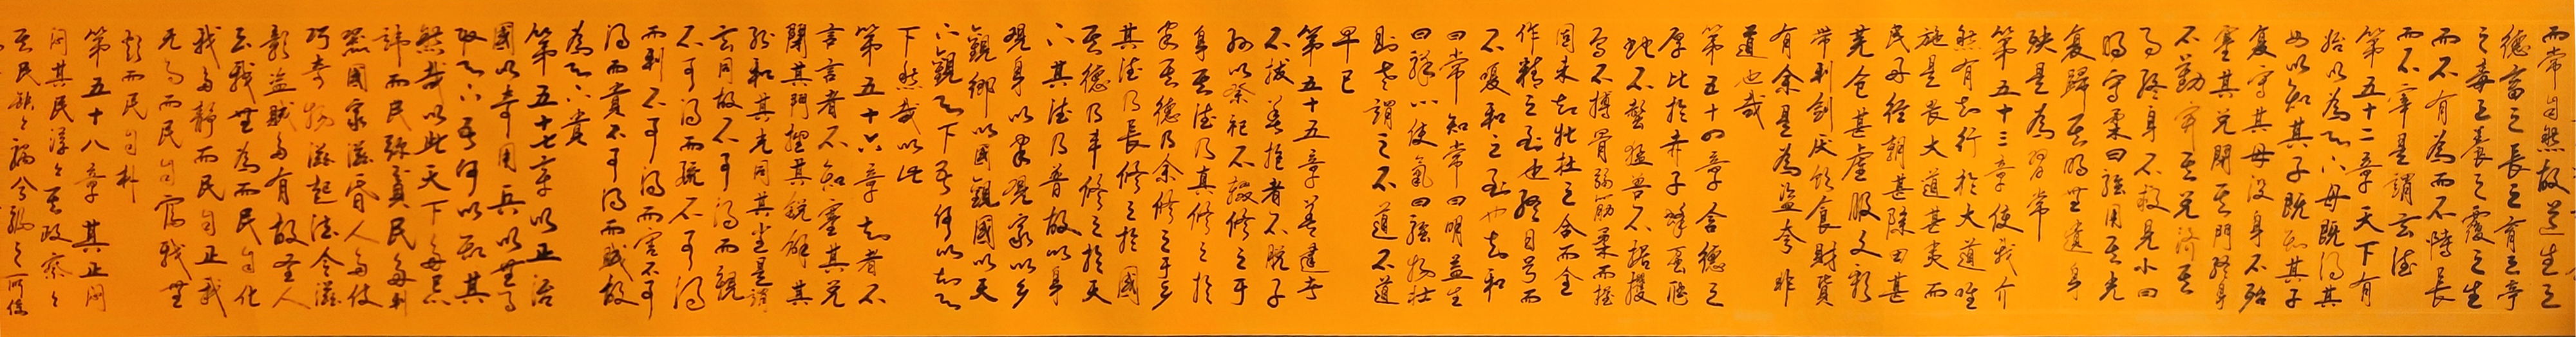 而常自然故道生之
德畜之長之育之亭
之毒之養之覆之生
而不有為而不恃長
而不宰是謂玄德
第五十二章天下有
始以為天下母既得其
母以知其子既知其子
復守其母沒身不殆
塞其兌閉其門終身
不勤開其兌濟其
事終身不救見小曰
明守柔曰強用其光
復歸其明無遺身
殃是為習常
第五十三章使我介
然有知行於大道唯
施是畏大道甚夷而
民好徑朝甚除田甚
蕪倉甚虛服文彩
帶利劍厭飲食財貨
有余是為盜夸非
道也哉
第五十四章含德之
厚比於赤子蜂蠆
蛇不螫猛獸不據攫
鳥不搏骨弱筋柔而握
固未知牝牡之合而全
作精之至也終日號而
不嗄和之至也知和
曰常知常曰明益生
曰祥心使氣曰強物壯
則老謂之不道不道
早已
第五十五章善建者
不拔善抱者不脫子
孫以祭祀不輟修之于
身其德乃真修之於
家其德乃余修之于鄉
其德乃長修之於國
其德乃丰修之於天
下其德乃普故以身
觀身以家觀家以鄉
觀鄉以國觀國以天
下觀天下吾何以知天
下然哉以此
第五十六章知者不
言言者不知塞其兌
閉其門挫其銳解其
紛和其光同其塵是謂
玄同故不可得而親
不可得而疏不可得
而利不可得而害不可
得而貴不可得而賤故
為天下貴
第五十七章以正治
國以奇用兵以無事
取天下吾何以知其
然哉以此天下多忌
諱而民彌貧民多利
器國家滋昏人多伎
巧奇物滋起法令滋
彰盜賊多有故聖人
云我無為而民自化
我好靜而民自正我
無事而民自富我無
欲而民自朴
第五十八章其正悶
悶其民淳淳其政察察
其民缺缺禍兮福之所倚